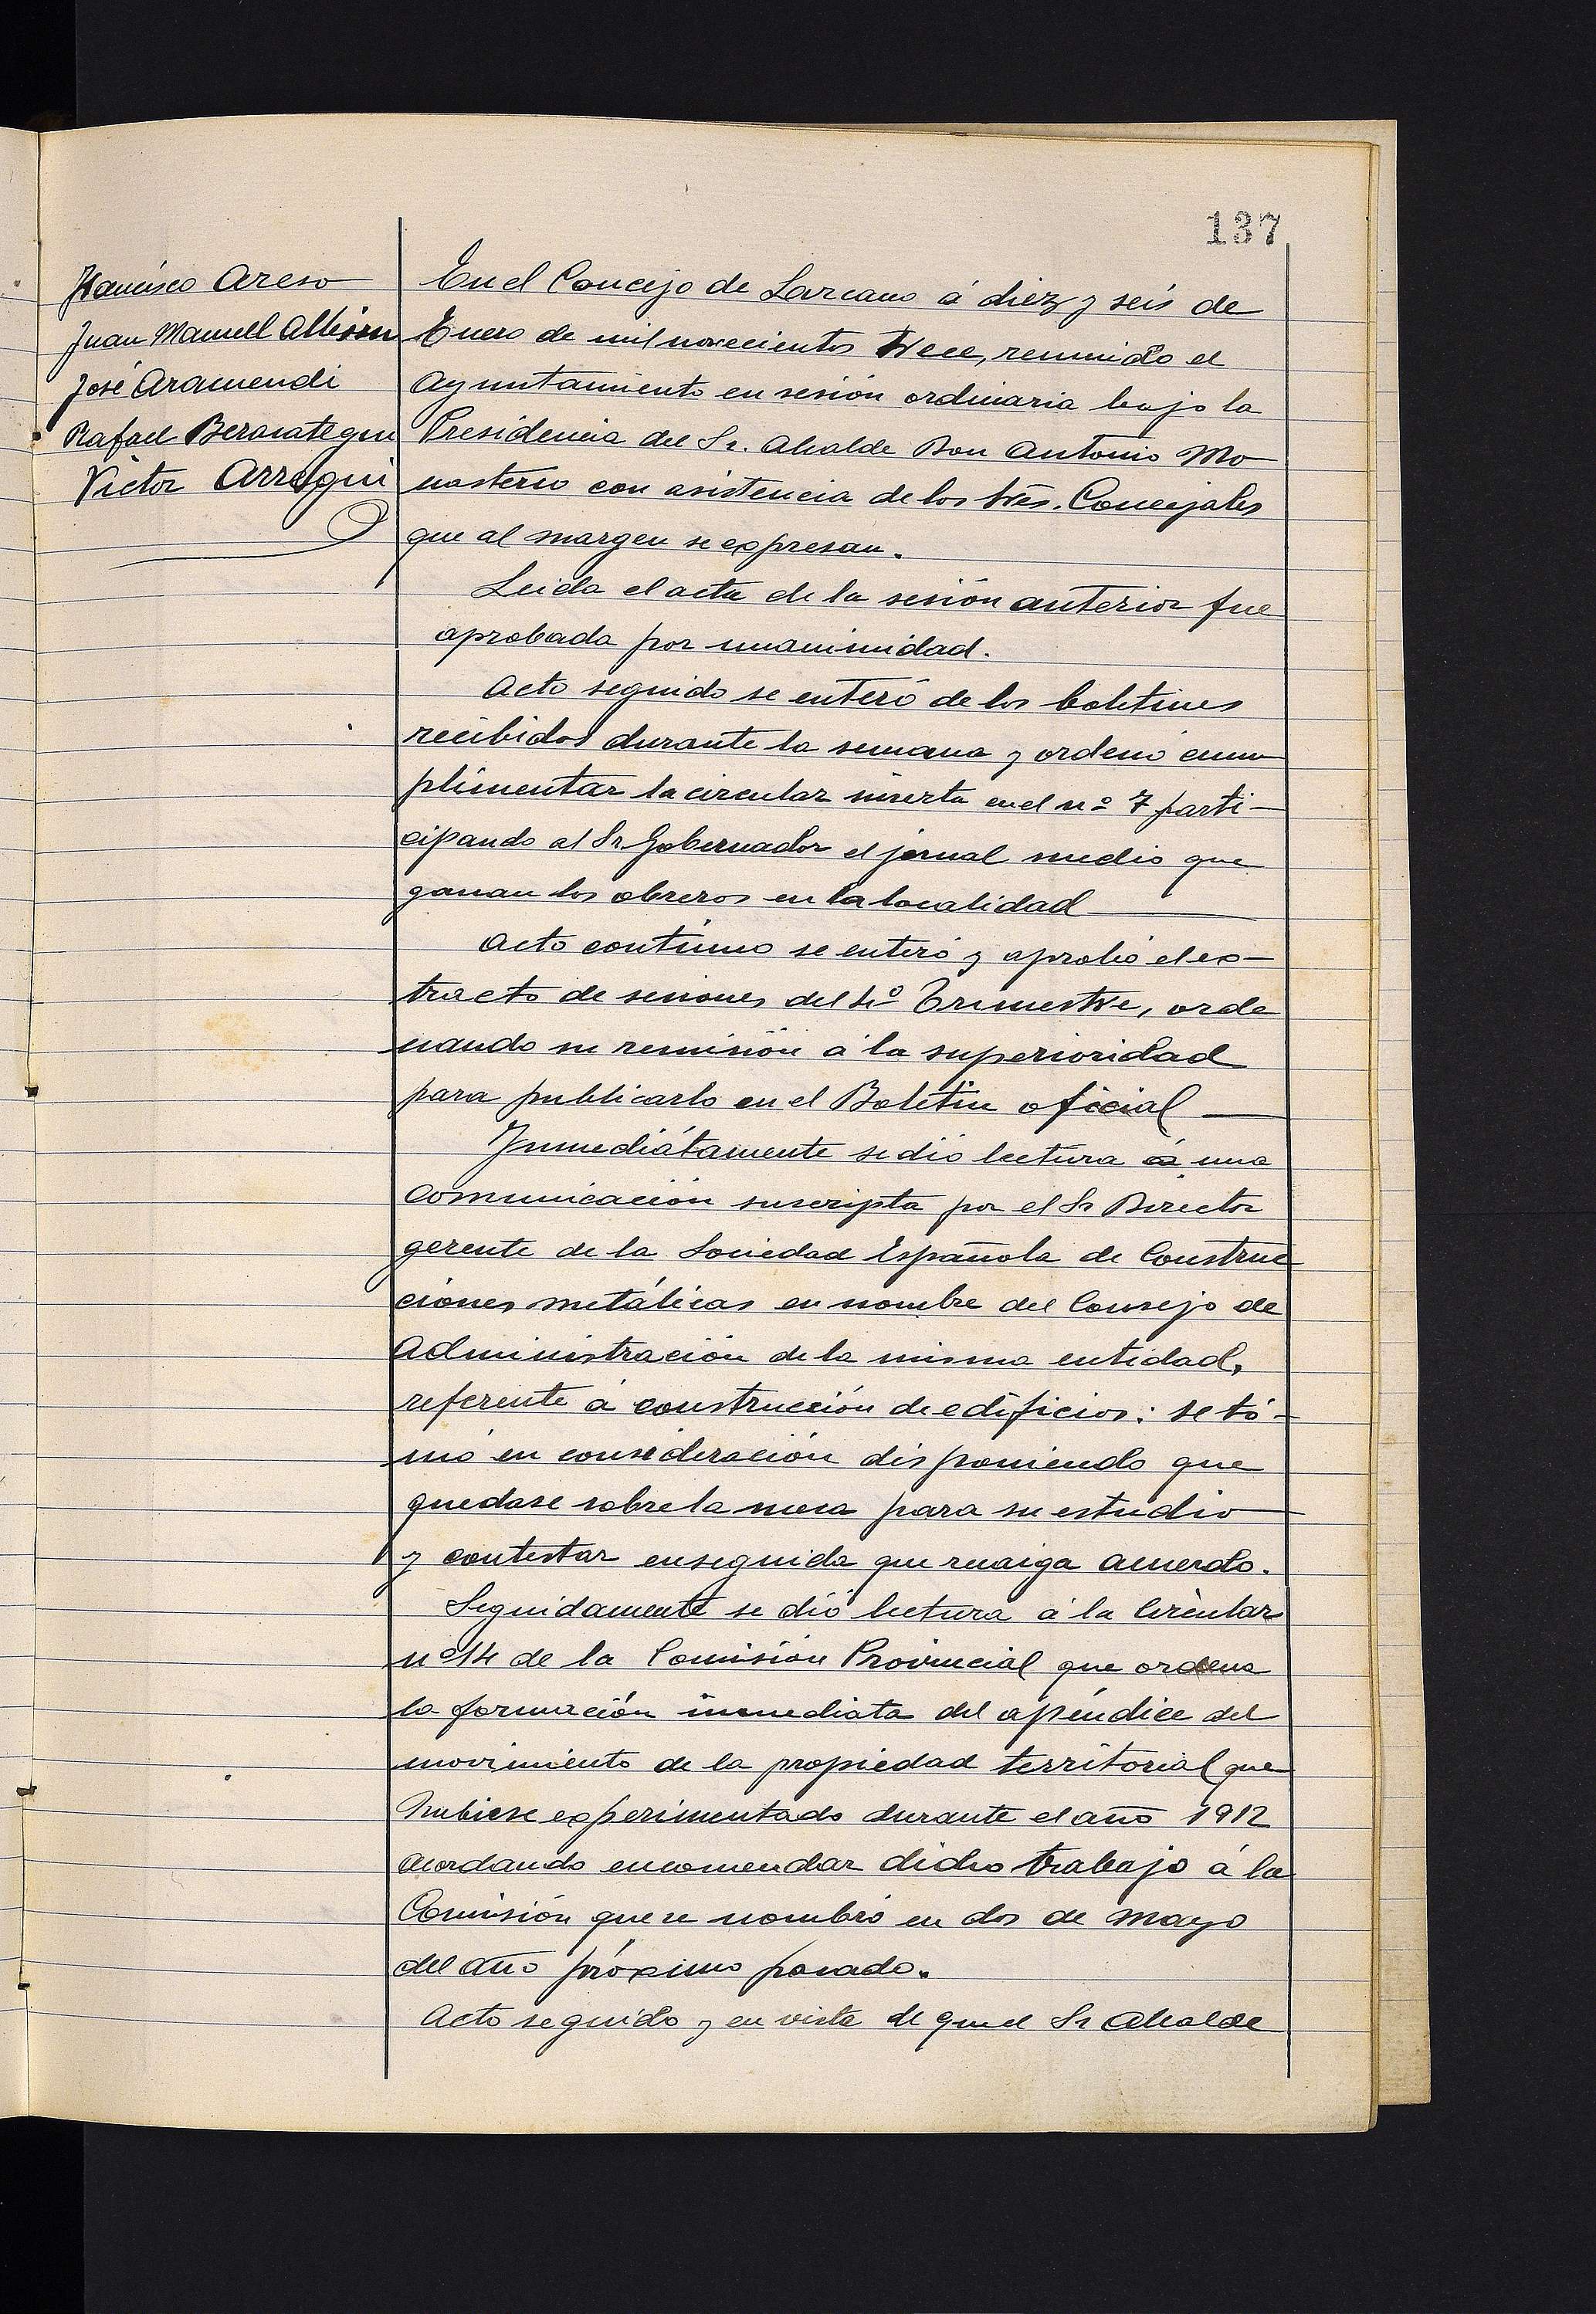 137
Francisco Areso
Juan Manuell Albisu
José Aramendi
Rafael Berasategui
Victor Arregui
En el Concejo de Lazcano á diez y seis de
Enero de mil novecientos trece, reunido el
Ayuntamiento en sesión ordinaria bajo la
Presidencia del Sr. Alcalde Don Antonio Mo
nasterio con asistencia de los Sres. Concejales
que al margen se expresan.
Leida el acta de la sesión anterior fue
aprobada por unanimidad.
Acto seguido se enteró de los boletines
recibidos durante la semana y ordenó cum
plimentar la circular inserta en el nº 7 parti-
cipando al Sr Gobernador el jornal medio que
ganan los obreros en la localidad
Acto contínuo se enteró y aprobó el ex-
tracto de sesiones del 4º Trimestre, orde
nando su remisión á la superioridad
para publicarlo en el Boletin oficial
Inmediátamente se dió lectura á una
comunicación suscripta por el Sr Director
gerente de la Sociedad Española de Construc
ciones metálicas en nombre del Consejo de
Administración de la misma entidad,
referente á construcción de edificios: se to-
mó en consideración disponiendo que
quedase sobre la mesa para su estudio
y contestar enseguida que recaiga acuerdo.
Seguidamente se dió lectura á la Circular
nº 14 de la Comisión Provincial que ordena
la formación inmediata del apéndice del
movimiento de la propiedad territorial que
hubiese experimentado durante el año 1912
acordando encomendar dicho trabajo á la
Comisión que se nombró en dos de Mayo
del año próximo pasado.
Acto seguido y en vista de que el Sr Alcalde